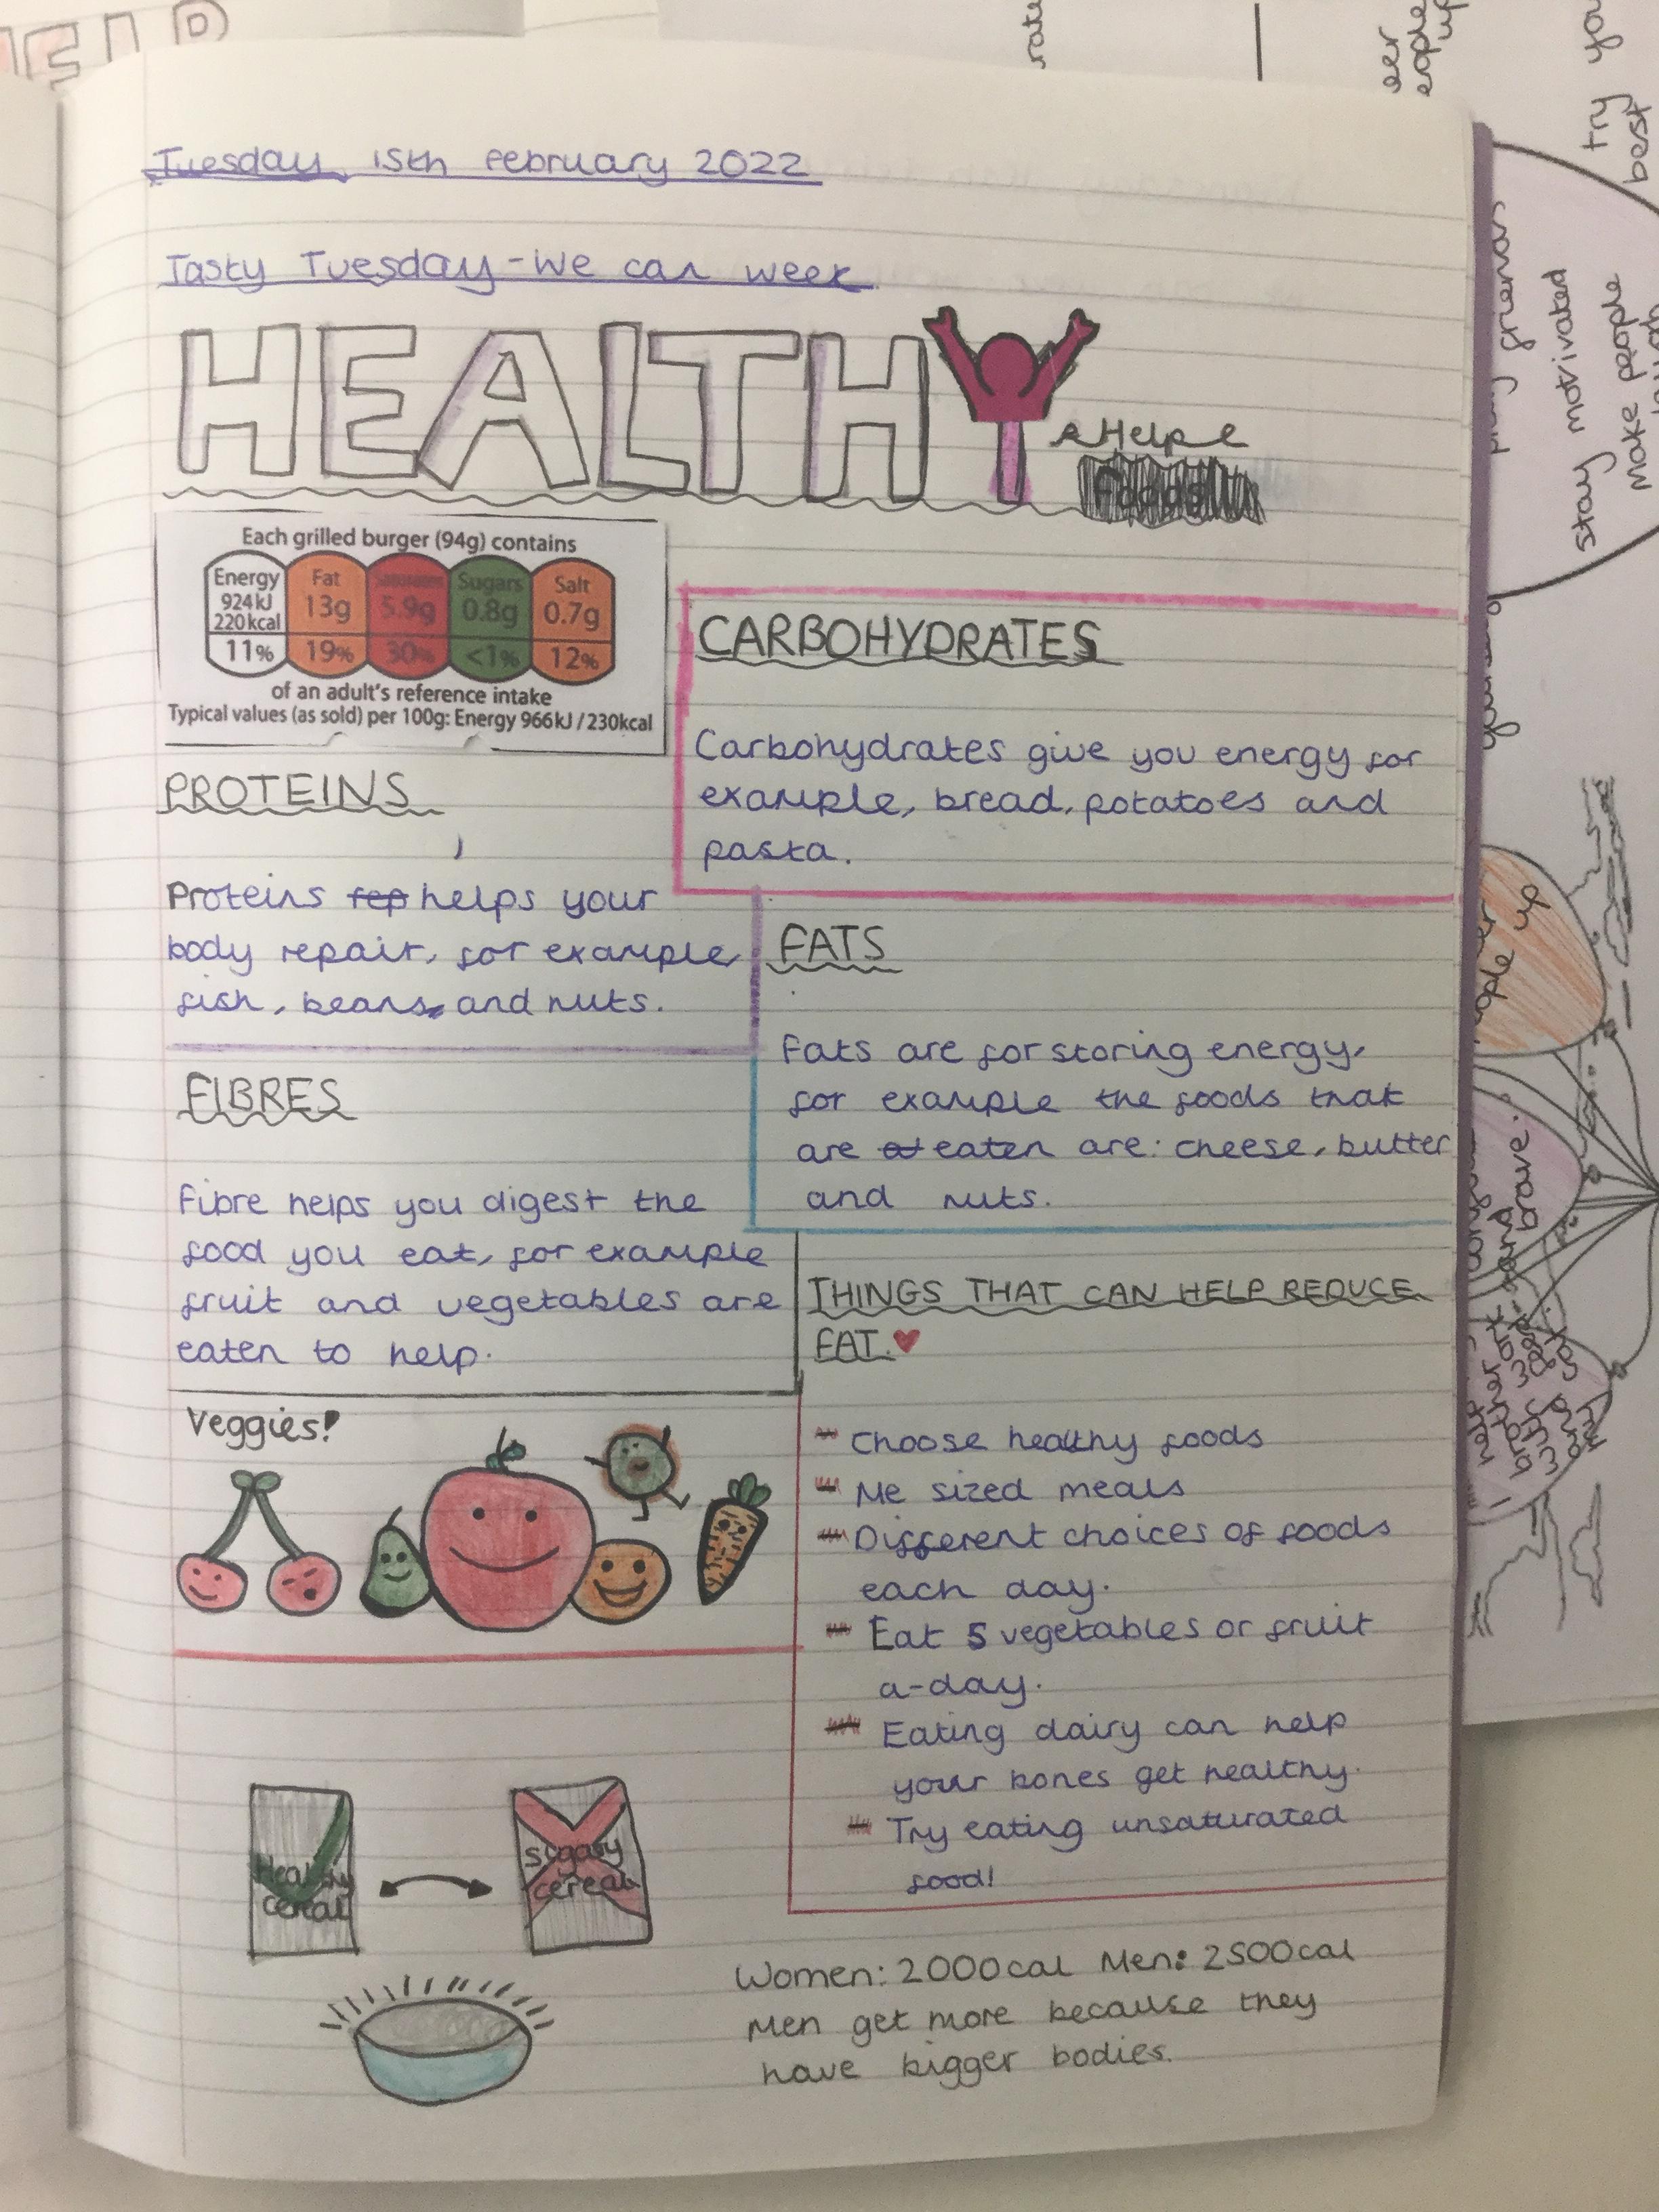 Tuesday 15th February 2022
Tasty Tuesday - We can week
HEALTHY
Each grilled burger (94g) contains
Energy 924kJ 220kcal 11%
Fat 13g 19%
5.9g 30%
Sugars 0.8g <1%
Salt 0.7g 12%
of an adult's reference intake
Typical values (as sold) per 100g: Energy 966kJ/230kcal
PROTEINS
Proteins helps your
body repair, for example
fish, beans and nuts.
CARBOHYDRATES
Carbohydrates give you energy for
example, bread, potatoes and
pasta.
FATS
Fats are for storing energy,
for example the foods that
are eaten are: cheese, butter
and nuts.
FIBRES
Fibre helps you digest the
food you eat, for example
fruit and vegetables are
eaten to help.
THINGS THAT CAN HELP REDUCE
FAT.
Choose healthy foods
Me sized meals
Different choices of foods
each day.
Eat 5 vegetables or fruit
a-day.
Eating dairy can help
your bones get healthy.
Try eating unsaturated
food!
Veggies!
Healthy
cereal
sugary
cereal
Women: 2000cal Men: 2500cal
Men get more because they
have bigger bodies.
try you
best
stay motivated
make people
brave.